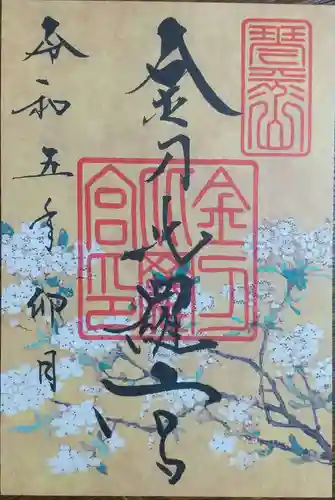 琴平山
金刀比羅宮
金刀
比羅
宮印
令和五年卯月